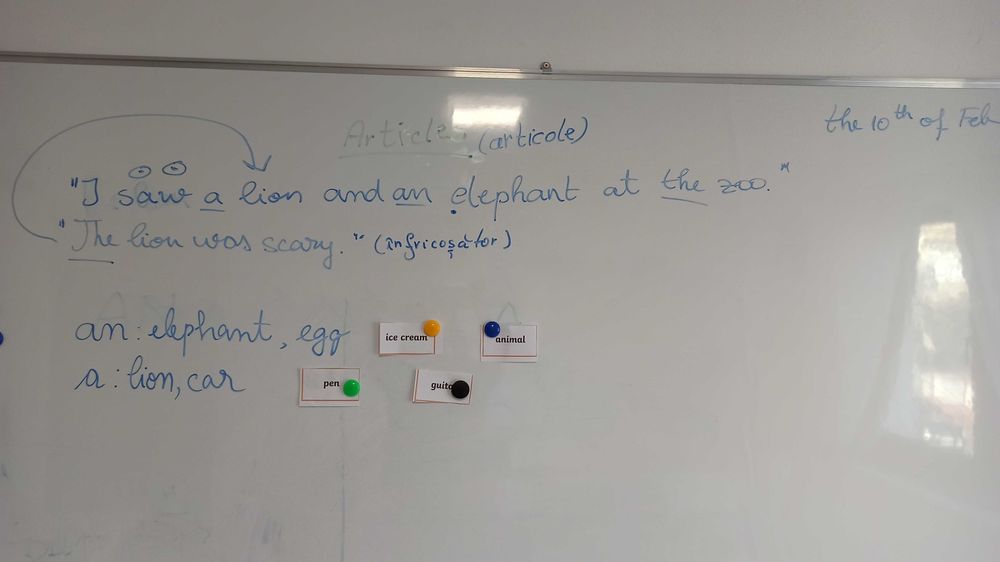 the 10th of Feb
Articles (articole)
"I saw a lion and an elephant at the zoo."
"The lion was scary." (înfricoșător)
an: elephant, egg
ice cream
animal
a: lion, car
pen